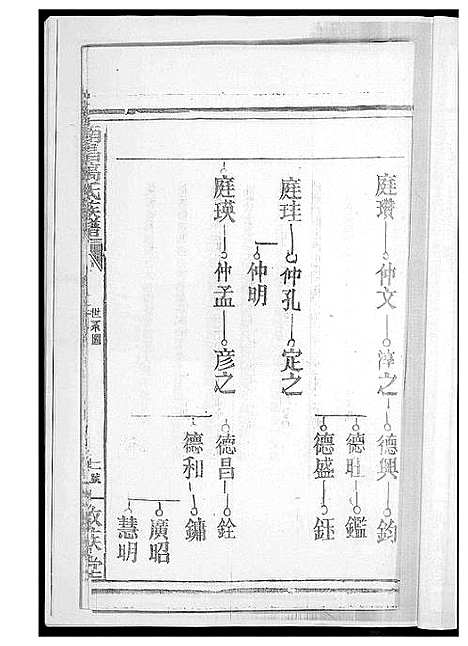 庭瓚 仲文 淳之 德興 鈞
德旺 鑑
德盛 鈺
庭珪 仲孔 定之
仲明
庭瑛 仲孟 彦之 德昌 銓
德和 鏞
廣昭
慧明
高氏族譜
世系圖
敦族堂